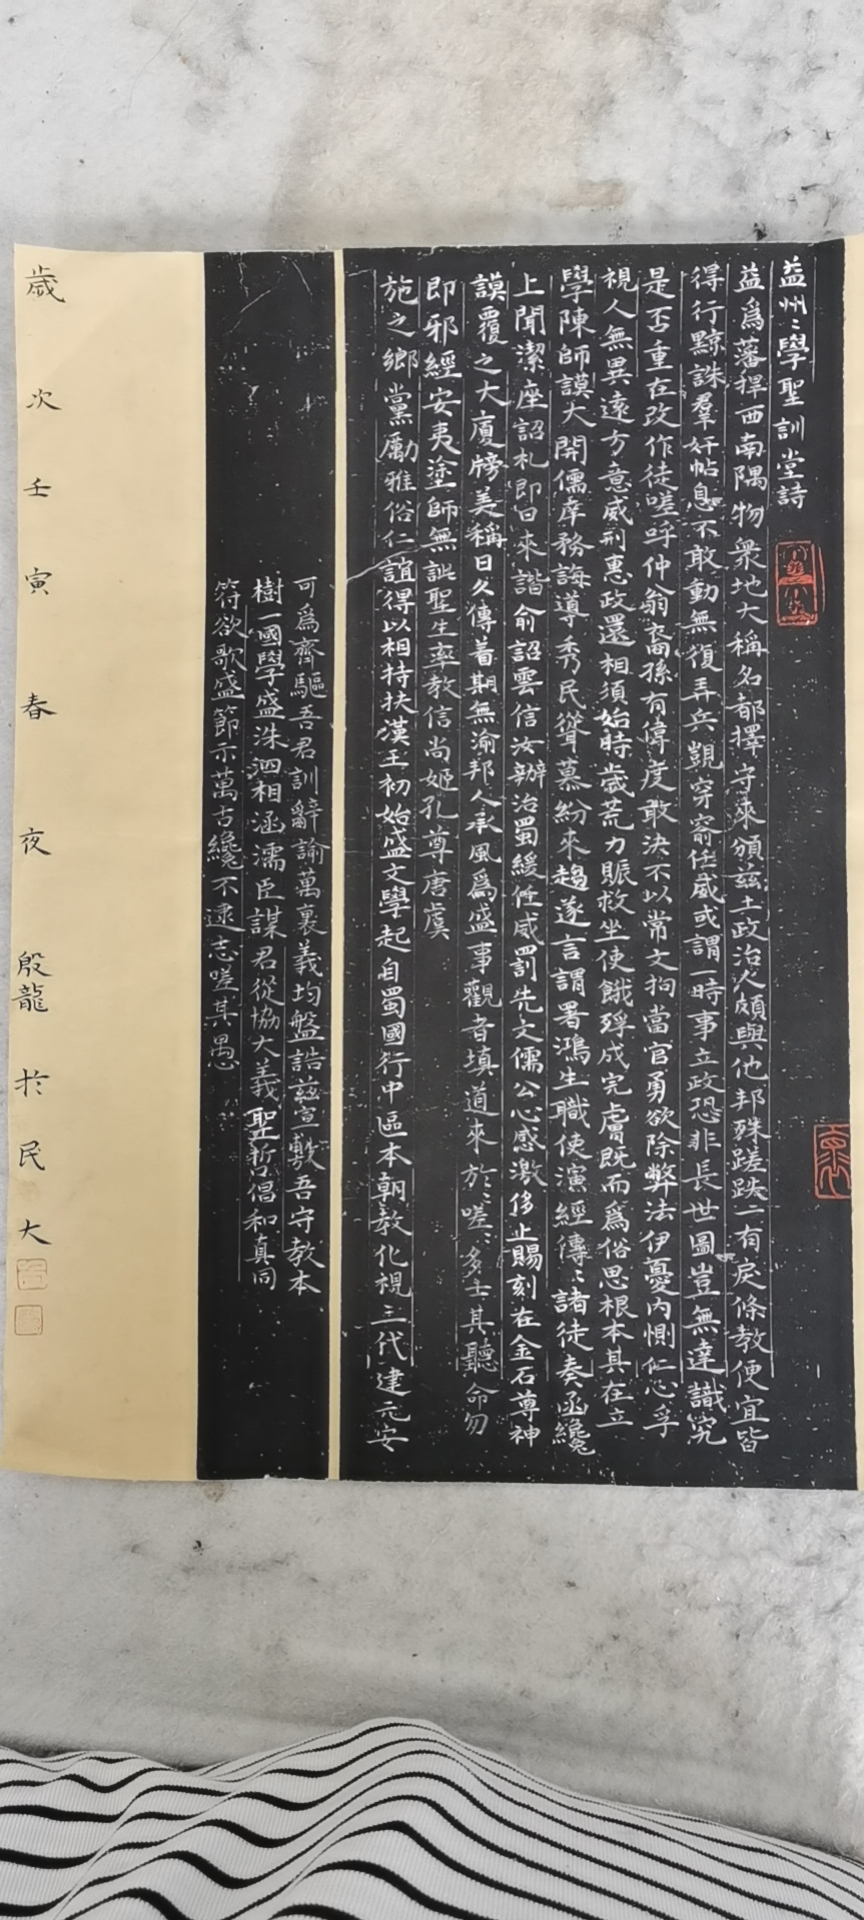 益州〻學聖訓堂詩
益爲藩稈西南隅物衆地大稱名都擇守來頒茲土政治久頗與他邦殊蹉跌一有戾條教便宜皆
得行黥誅羣奸帖息不敢動無復弄兵覬穿窬任威或謂一時事立政恐非長世圖豈無達識究
是否重在改作徒嗟呼仲翁裔孫有偉度敢決不以常文拘當官勇欲除弊法伊憂内惻仁心孚
視人無異遠方意威刑惠政還相須始時歲荒力賑救坐使餓殍成完膚既而爲俗思根本其在立
學陳師謨大開儒庠務誨導秀民聳慕紛來趨遂言謂署鴻生職使演經傳〻諸徒奏函纔
上聞潔座詔札即日來諧俞詔雲信汝辦治蜀緩任威罰先文儒公心感激侈上賜刻在金石尊神
謨覆之大廈牓美稱日久傳着期無渝邦人承風爲盛事觀者填道來於〻嗟〻多士其聽命勿
即邪經安夷塗師無訿聖生率教信尚姬孔尊唐虞
施之鄉黨勵雅俗仁誼得以相持扶漢王初始盛文學起自蜀國行中區本朝教化視三代建元安
可爲齊驅吾君訓辭諭萬裏義均盤誥茲宣敷吾守教本
樹一國學盛洙泗相涵濡臣謀君從協大義聖哲倡和真同
符欲歌盛節示萬古纔不逮志嗟其愚
歲次壬寅春夜殷龍於民大